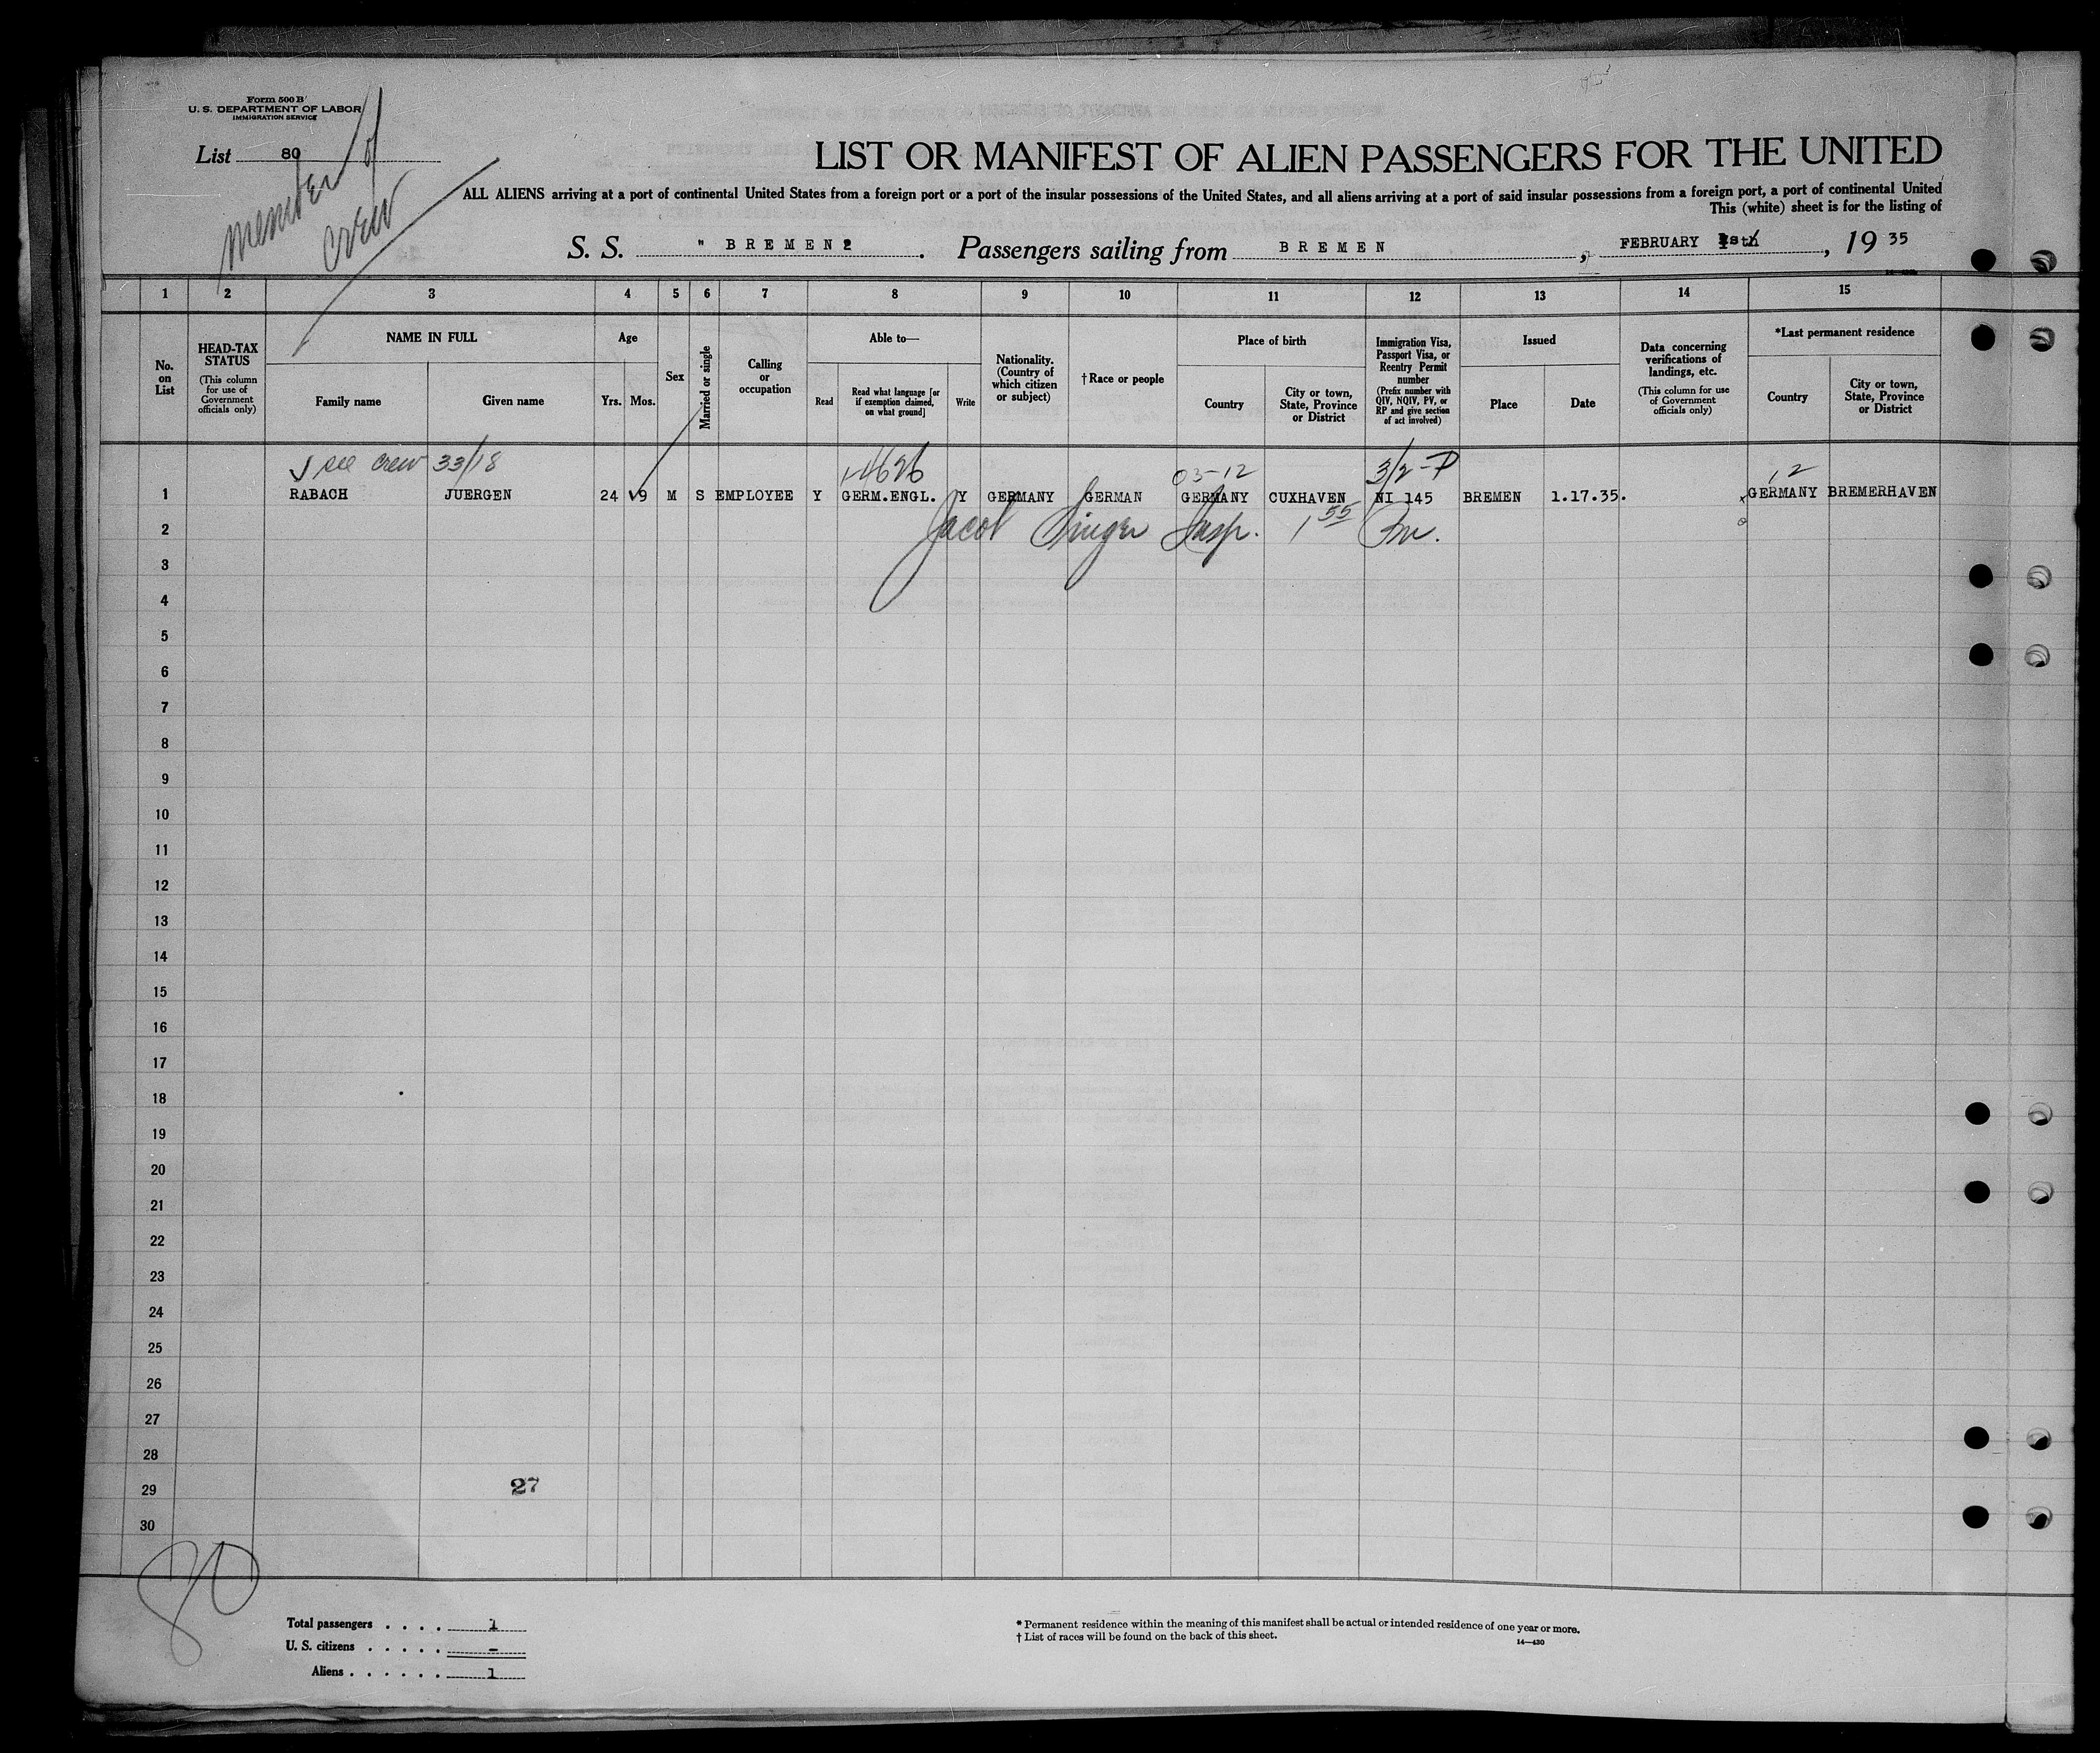 Form 500 B
U. S. DEPARTMENT OF LABOR
IMMIGRATION SERVICE
List 80
member of
crew
LIST OR MANIFEST OF ALIEN PASSENGERS FOR THE UNITED
ALL ALIENS arriving at a port of continental United States from a foreign port or a port of the insular possessions of the United States, and all aliens arriving at a port of said insular possessions from a foreign port, a port of continental United
This (white) sheet is for the listing of
S. S. " BREMEN2 . Passengers sailing from BREMEN , FEBRUARY , 19 35
1 2 3 4 5 6 7 8 9 10 11 12 13 14 15
No. on List
HEAD-TAX STATUS (This column for use of Government officials only)
NAME IN FULL
Family name Given name
Age
Yrs. Mos.
Sex
Married or single
Calling or occupation
Able to—
Read
Read what language [or if exemption claimed, on what ground]
Write
Nationality. (Country of which citizen or subject)
† Race or people
Place of birth
Country
City or town, State, Province or District
Immigration Visa, Passport Visa, or Reentry Permit number (Prefix number with QIV, NQIV, PV, or RP and give section of act involved)
Issued
Place Date
Data concerning verifications of landings, etc. (This column for use of Government officials only)
*Last permanent residence
Country
City or town, State, Province or District
see crew 33/18 03-12 3/2-P 12
1 RABACH JUERGEN 24 9 M S EMPLOYEE Y GERM.ENGL. Y GERMANY GERMAN GERMANY CUXHAVEN NI 145 BREMEN 1.17.35. GERMANY BREMERHAVEN
2 Jacob Singer Insp. 1 55
3
4
5
6
7
8
9
10
11
12
13
14
15
16
17
18
19
20
21
22
23
24
25
26
27
28
29 27
30
80
Total passengers . . . . 1
U. S. citizens . . . . . -
Aliens . . . . . . 1
* Permanent residence within the meaning of this manifest shall be actual or intended residence of one year or more.
† List of races will be found on the back of this sheet.
14—430